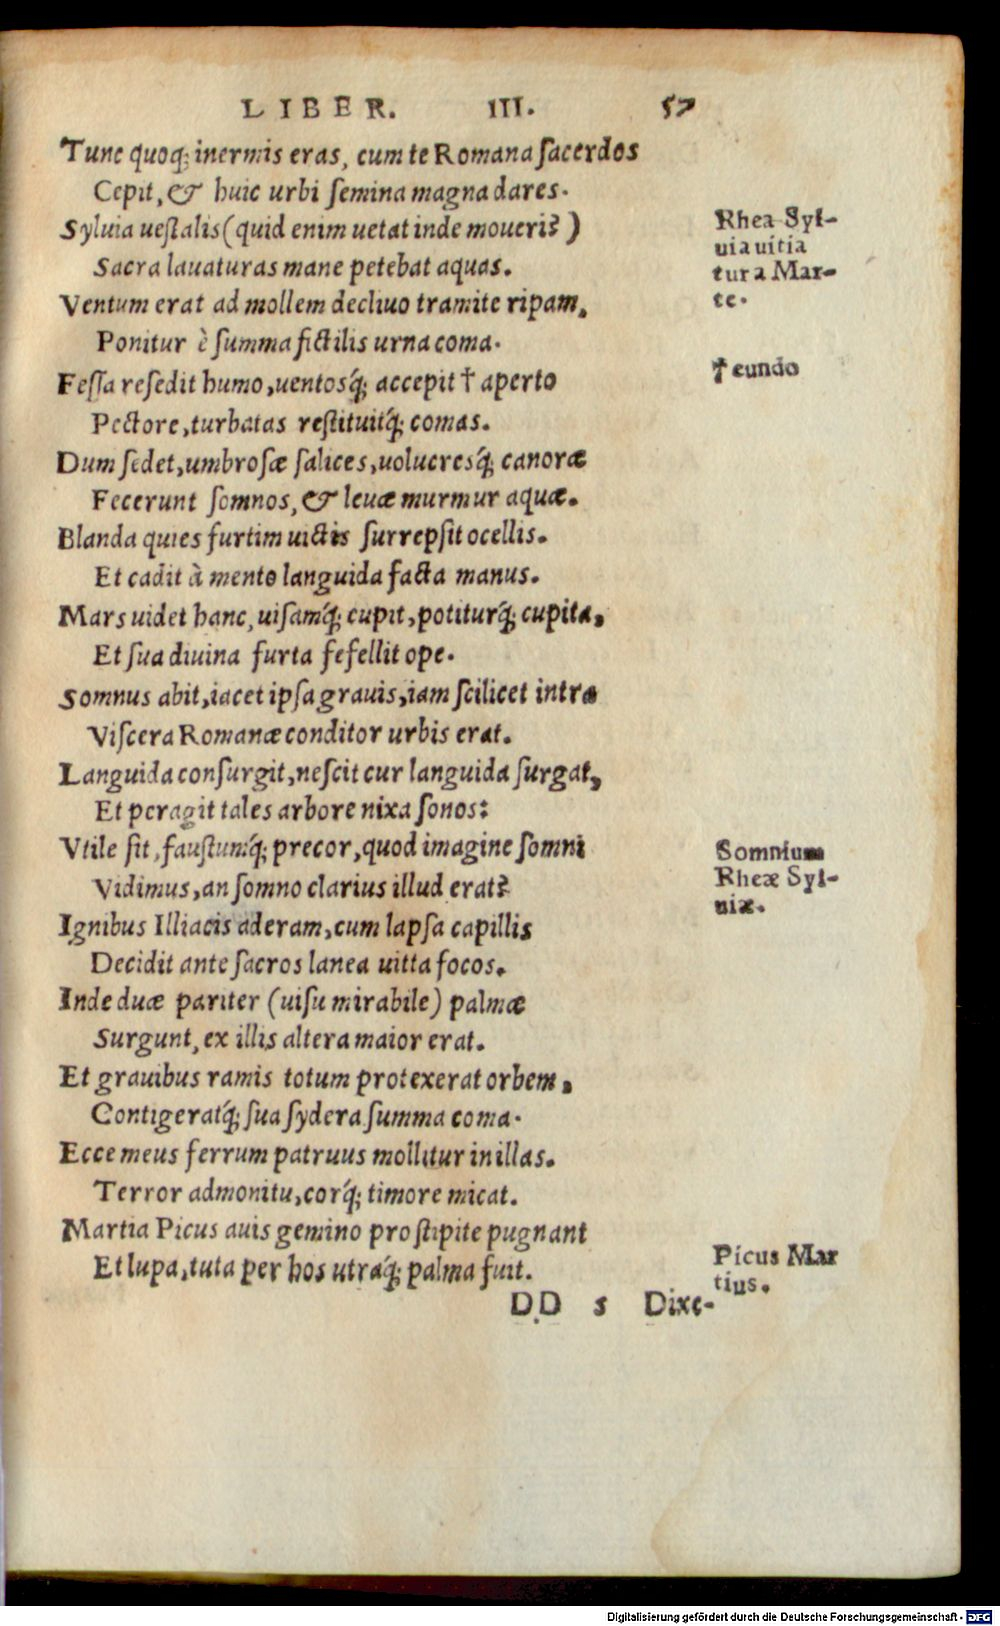 LIBER. III. 57
Tunc quoq; inermis eras, cum te Romana sacerdos
Cepit, & huic urbi semina magna dares.
Syluia uestalis (quid enim uetat inde moueri?)
Sacra lauaturas mane petebat aquas.
Ventum erat ad mollem decliuo tramite ripam,
Ponitur è summa fictilis urna coma.
Fessa resedit humo, uentosq́; accepit † aperto
Pectore, turbatas restituitq́; comas.
Dum sedet, umbrosæ salices, uolucresq́; canoræ
Fecerunt somnos, & leuæ murmur aquæ.
Blanda quies furtim uictis surrepsit ocellis.
Et cadit à mento languida facta manus.
Mars uidet hanc, uisamq́; cupit, potiturq́; cupita,
Et sua diuina furta fefellit ope.
Somnus abit, iacet ipsa grauis, iam scilicet intra
Viscera Romanæ conditor urbis erat.
Languida consurgit, nescit cur languida surgat,
Et peragit tales arbore nixa sonos:
Vtile sit, faustumq́; precor, quod imagine somni
Vidimus, an somno clarius illud erat?
Ignibus Illiacis aderam, cum lapsa capillis
Decidit ante sacros lanea uitta focos.
Inde duæ pariter (uisu mirabile) palmæ
Surgunt, ex illis altera maior erat.
Et grauibus ramis totum protexerat orbem,
Contigeratq́; sua sydera summa coma.
Ecce meus ferrum patruus mollitur in illas.
Terror admonitu, corq́; timore micat.
Martia Picus auis gemino pro stipite pugnant
Et lupa, tuta per hos utraq́; palma fuit.
DD 5 Dixe-
Rhea Syl-
uia uitia
tur a Mar-
te.
† eundo
Somnium
Rheæ Syl-
uiæ.
Picus Mar
tius.
Digitalisierung gefördert durch die Deutsche Forschungsgemeinschaft - DFG